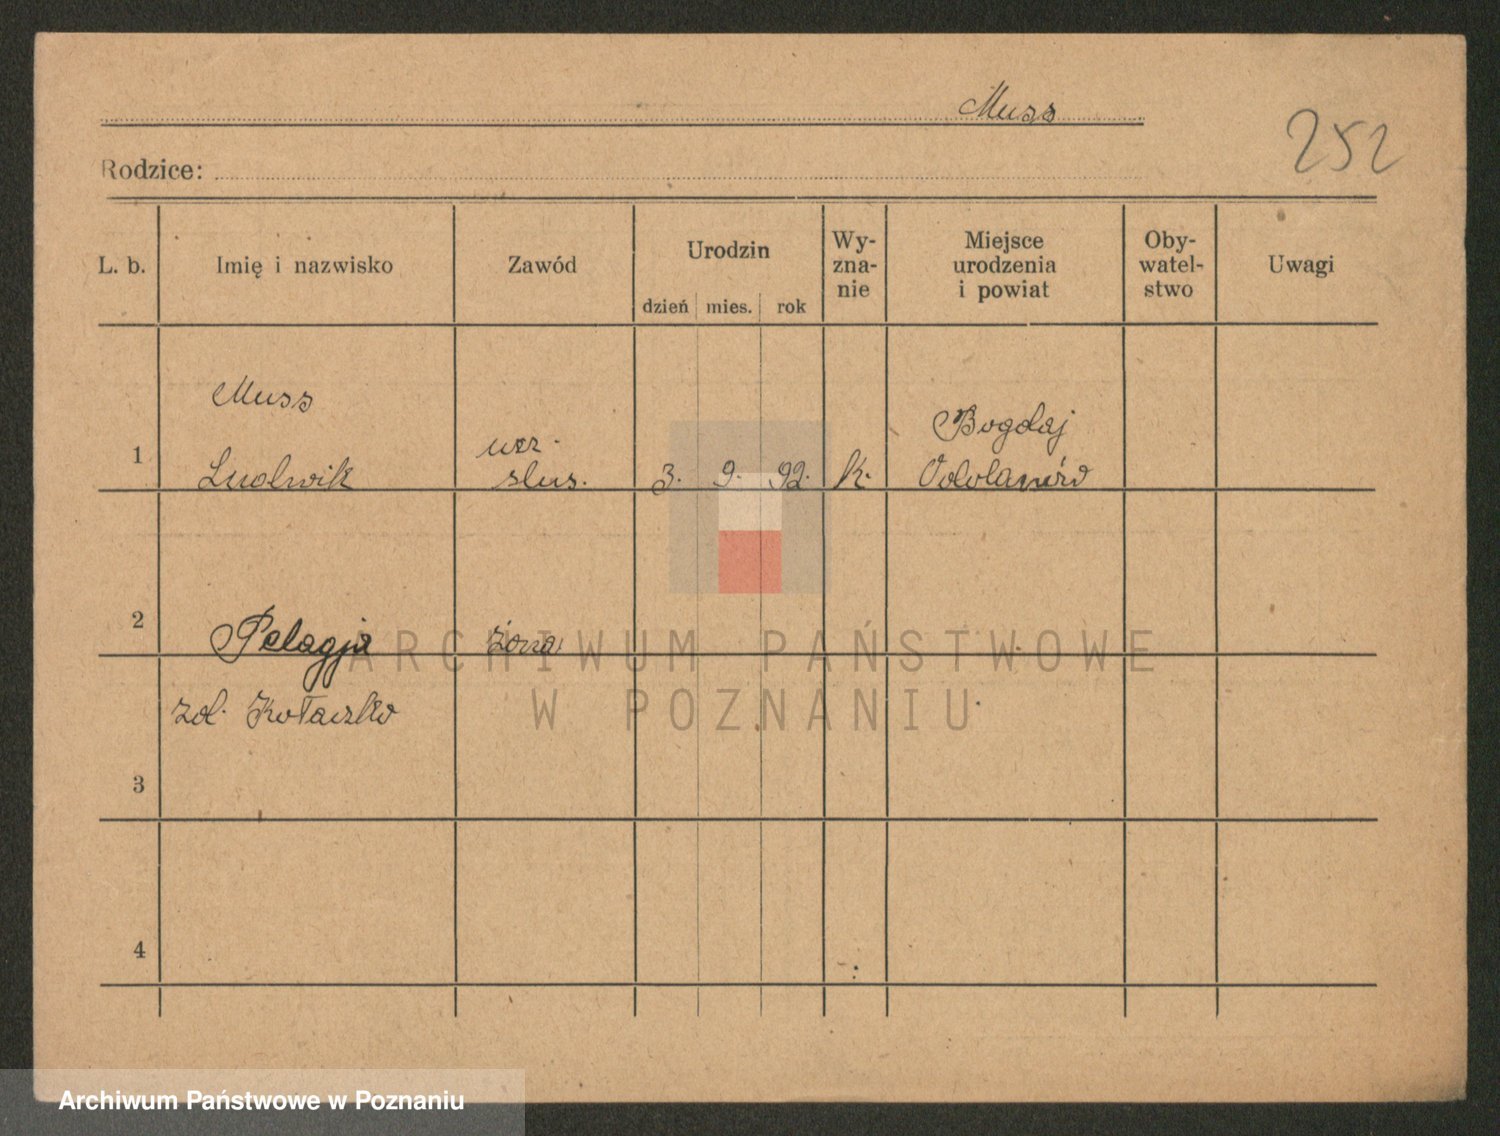 Muss
252
Rodzice:
L. b. Imię i nazwisko Zawód Urodzin dzień mies. rok Wy-zna-nie Miejsce urodzenia i powiat Oby-watel-stwo Uwagi
Muss Bogdaj
1 Ludwik urz. słus. 3. 9. 92. K. Odolanów
2 Pelagja żona
zd.
3
4
ARCHIWUM PAŃSTWOWE
W POZNANIU
Archiwum Państwowe w Poznaniu